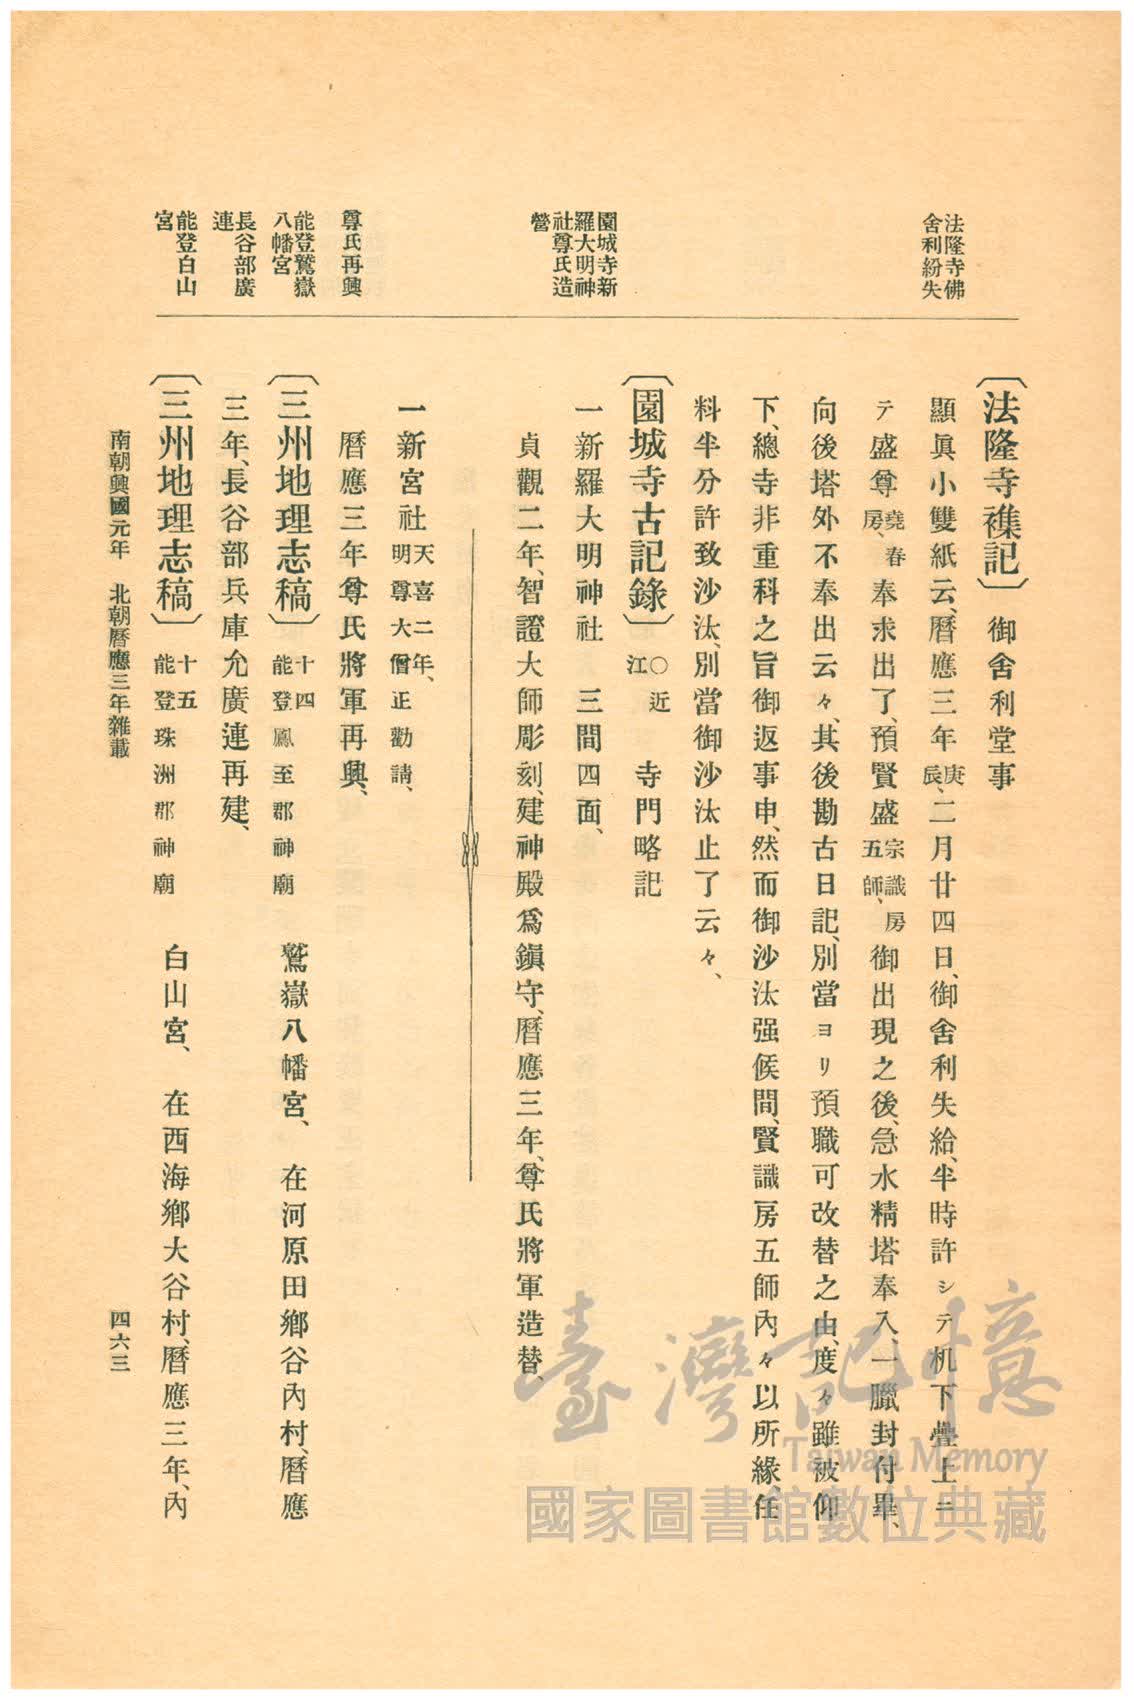 法隆寺佛
舍利紛失
園城寺新
羅大明神
社尊氏造
營
尊氏再興
能登鷲嶽
八幡宮
長谷部廣
連
能登白山
宮
〔法隆寺襍記〕 御舍利堂事
顯眞小雙紙云、曆應三年庚辰、二月廿四日、御舍利失給、半時許シテ机下疊上ニ
テ盛尊堯春房、奉求出了、預賢盛宗識房五師、御出現之後、急水精塔奉入、一﨟封付畢、
向後塔外不奉出云々、其後勘古日記、別當ヨリ預職可改替之由、度々雖被仰
下、總寺非重科之旨御返事申、然而御沙汰强候間、賢識房五師內々以所緣、任
料半分許致沙汰、別當御沙汰止了云々、
〔園城寺古記錄〕〇近江 寺門略記
一新羅大明神社 三間四面、
貞觀二年、智證大師彫刻、建神殿爲鎭守、曆應三年、尊氏將軍造替、
一新宮社天喜二年、明尊大僧正勸請、
曆應三年尊氏將軍再興、
〔三州地理志稿〕十四能登鳳至郡神廟 鷲嶽八幡宮、 在河原田鄕谷內村、曆應
三年、長谷部兵庫允廣連再建、
〔三州地理志稿〕十五能登珠洲郡神廟 白山宮、 在西海鄕大谷村、曆應三年、內
南朝興國元年 北朝曆應三年雜載 四六三
臺灣記憶
Taiwan Memory
國家圖書館數位典藏